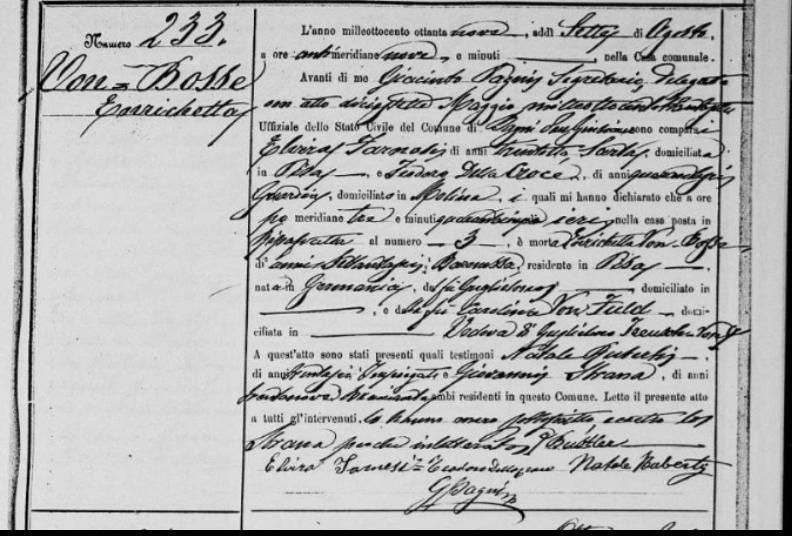 Numero 233.
Von=Bosse
Enrichetta
L'anno millottocento ottanta nove, addì Sette di Agosto
a ore antimeridiane nove, e minuti, nella Casa comunale.
Avanti di me Giacinto Pagni Segretario, Delegato
con atto diciassette Maggio milleottocento
Uffiziale dello Stato Civile del Comune di Bagni San Giuliano sono comparsi
Elvira di anni Sarta, domiciliata
in Pisa, e Teodoro Della Croce, di anni
Guardia, domiciliato in Molina, i quali mi hanno dichiarato che a ore
po meridiane tre e minuti quarantacinque di ieri, nella casa posta in
Ripafratta al numero 3, è morta Enrichetta Von-Bosse
di anni Settantasei, Baronessa, residente in Pisa
nata in Germania, da fu Guglielmo domiciliato in
, e da fu Carolina Von-Fuld domi-
ciliata in Vedova di Guglielmo
A quest'atto sono stati presenti quali testimoni Natale
di anni Impiegato e Giovanni Strana, di anni
ambi residenti in questo Comune. Letto il presente atto
a tutti gl'intervenuti, lo hanno meco sottoscritto, eccetto lo
Strana perché inletterato
Elvira = Teodoro Dellacroce Natale
G Pagni